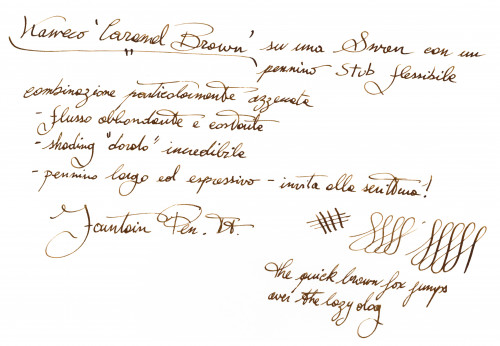 Kaweco "Caramel Brown" su una Swan con un
pennino Stub flessibile
combinazione particolarmente azzeccata
- flusso abbondante e costante
- shading "dorato" incredibile
- pennino largo ed espressivo - invita alla scrittura!
Fountain Pen. It.
the quick brown fox jumps
over the lazy dog